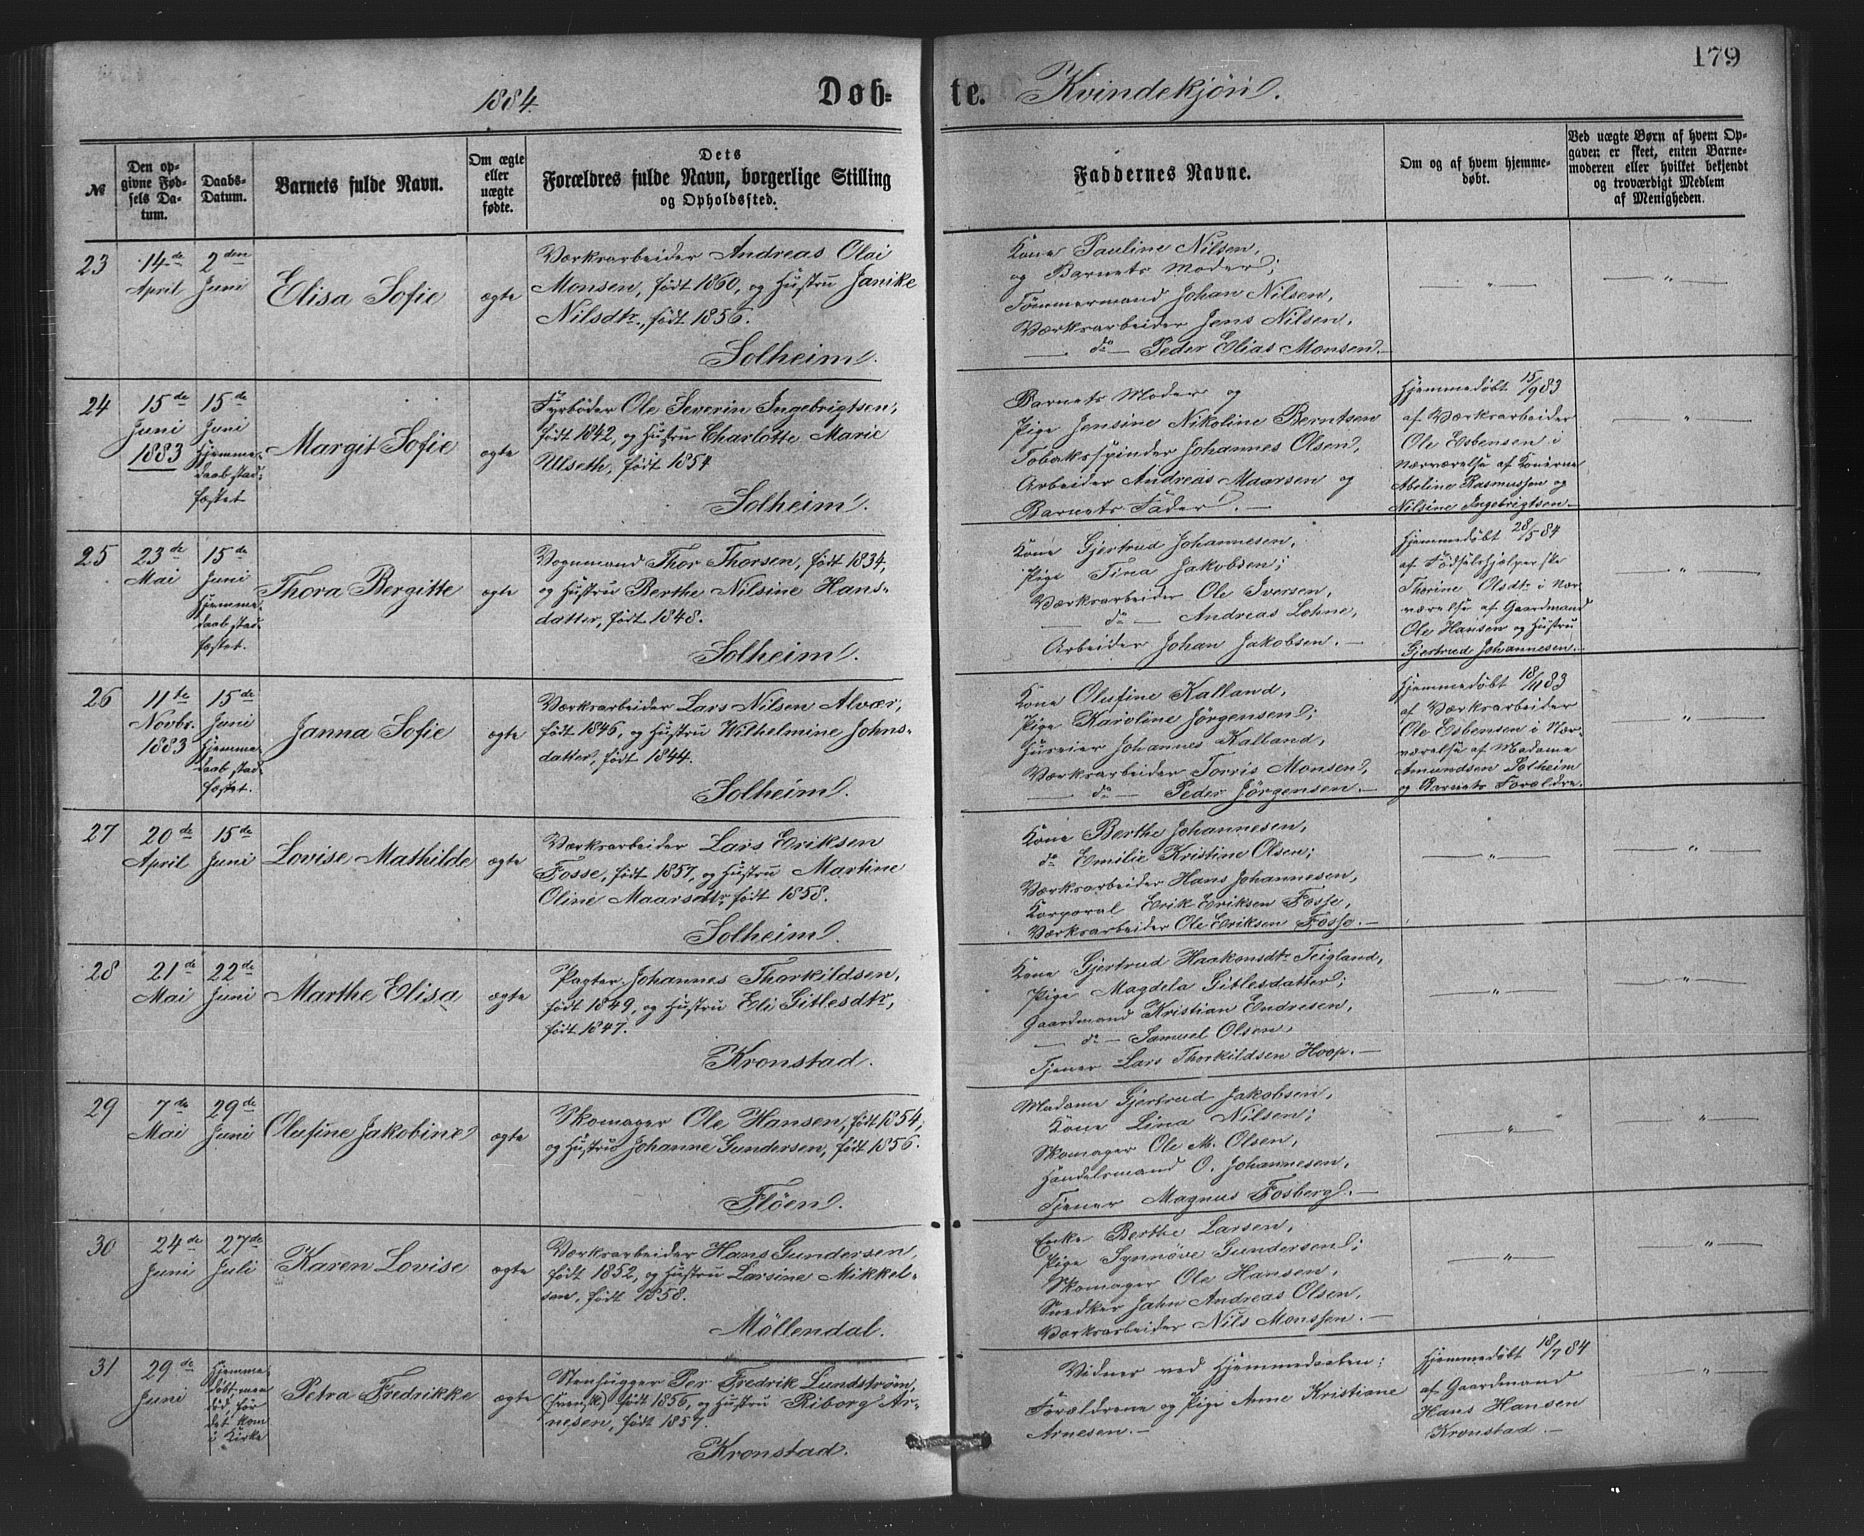 179
1884.
Døb-
te. Kvindekjøn.
№
Den op-
givne Fød-
sels Da-
tum.
Daabs-
Datum.
Barnets fulde Navn.
Om ægte
eller
uægte
født.
Dets
Forældres fulde Navn, borgerlige Stilling
og Opholdssted.
Faddernes Navne.
Om og af hvem hjemme-
døbt.
Ved uægte Børn af hvem Op-
gaven er skeet, enten Barne-
moderen eller hvilket bekjendt
og troværdigt Medlem
af Menigheden.
23
14de
April
2den
Juni
Elisa Sofie
ægte
Værksarbeider Andreas Olai
Monsen, født 1860, og Hustru Janike
Nilsdtr., født 1856.
Solheim.
Kone Pauline Nilsen,
og Barnets Moder;
Tømmermand Johan Nilsen,
Værksarbeider Jens Nilsen,
— do — Peder Elias Monsen. —
— " —
— " —
24
15de
Juni
1883
15de
Juni
Hjemme-
daab stad-
fæstet
Margit Sofie
ægte
Fyrbøder Ole Severin Ingebrigtsen,
født 1842, og Hustru Charlotte Marie
Ulseth, født 1854
Solheim.
Barnets Moder og
Pige Jensine Nikoline Berntsen
Tobaksspinder Johannes Olsen,
Arbeider Andreas Maarsen og
Barnets Fader. —
Hjemmedøbt 15/9 83
af Værksarbeider
Ole Esbensen i
Nærværelse af Konerne
Abeline Rasmussen og
Nilsine Ingebrigtsen. —
— " —
25
23de
Mai
15de
Juni
Hjemme-
daab stad-
fæstet.
Thora Bergitte
ægte
Vognmand Thor Thorsen, født 1834,
og Hustru Berthe Nilsine Hans-
datter, født 1848.
Solheim.
Kone Gjertrud Johannesen,
Pige Tina Jakobsen;
Værksarbeider Ole Iversen,
— do — Andreas Lohne,
Arbeider Johan Jakobsen. —
Hjemmedøbt 28/5 84
af Fødselshjælperske
Thorine Olsdtr i Nær-
værelse af Gaardmand
Ole Hansen og Hustru
Gjertrud Johannesen. —
— " —
26
11te
Novbr.
1883
15de
Juni
Hjemme-
daab stad-
fæstet.
Janna Sofie
ægte
Værksarbeider Lars Nilsen Alvær,
født 1846, og Hustru Wilhelmine Johns-
datter, født 1844.
Solheim.
Kone Olufine Kalland,
Pige Karoline Jørgensen;
Huseier Johannes Kalland,
Værksarbeider Torris Monsen,
— do — Peder Jørgensen. —
Hjemmedøbt 18/11 83
af Værksarbeider
Ole Esbensen i Nær-
værelse af Madame
Amundsen Solheim
og Barnets Forældre.
— " —
27
20de
April
15de
Juni
Lovise Mathilde
ægte
Værksarbeider Lars Eriksen
Fosse, født 1857, og Hustru Martine
Oline Maarsdtr, født 1858.
Solheim.
Kone Berthe Johannesen,
do Emilie Kristine Olsen;
Værksarbeider Hans Johannesen,
Korporal Erik Eriksen Fosse,
Værksarbeider Ole Eriksen Fosse. —
— " —
— " —
28
21de
Mai
22de
Juni
Marthe Elisa
ægte
Pagter Johannes Thorkildsen,
født 1849, og Hustru Eli Gitlesdtr,
født 1847.
Kronstad.
Kone Gjertrud Haakonsdtr Teigland,
Pige Magdela Gitlesdatter;
Gaardmand Kristian Endresen,
— do — Samuel Olsen,
Tjener Lars Thorkildsen Hoop. —
— " —
— " —
29
7de
Mai
29de
Juni
Olufine Jakobine
ægte
Skomager Ole Hansen, født 1854,
og Hustru Johanne Gundersen, født 1856.
Fløen.
Madame Gjertrud Jakobsen,
Kone Lina Nilsen;
Skomager Ole M. Olsen,
Handelsmand O. Johannesen,
Tjener Magnus Fosberg. —
— " —
— " —
30
24de
Juni
27de
Juli
Karen Lovise
ægte
Værksarbeider Hans Gundersen,
født 1852, og Hustru Larsine Mikkel-
sen, født 1858.
Møllendal.
Enke Berthe Larsen,
Pige Synnøve Gundersen;
Skomager Ole Hansen,
Snedker Jahn Andreas Olsen,
Værksarbeider Nils Monssen. —
— " —
— " —
31
29de
Juni
Hjemme-
døbt, men
død, før
det kom
i Kirke
Petra Fredrikke
ægte
Stenhugger Per Fredrik Lundstrøm,
(svensk) født 1856, og Hustru Riborg Ar-
nesen, født 1857.
Kronstad.
Vidner ved Hjemmedaaben:
Forældrene og Pige Anne Kristiane
Arnesen. —
Hjemmedøbt 18/7 84
af Gaardmand
Hans Hansen
Kronstad. —
"